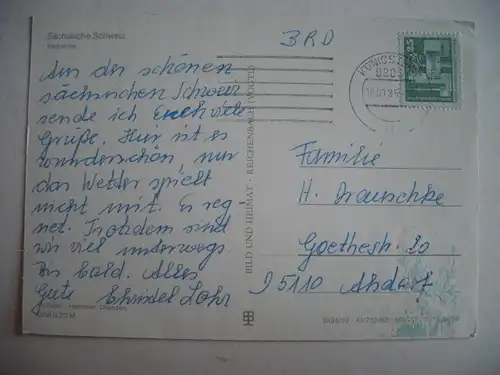 Sächsische Schweiz
BRD
Aus der schönen
sächsischen Schweiz
sende ich Euch viele
Grüße. Hier ist es
wunderschön, nur
das Wetter spielt
nicht mit. Es reg-
net. Trotzdem sind
wir viel unterwegs.
Bis bald. Alles
Gute Christel Lohr
BILD UND HEIMAT · REICHENBACH (VOGTL)
KÖNIGSTEIN
25
Familie
H. Drauschke
Goethestr. 20
D 5110 Alsdorf